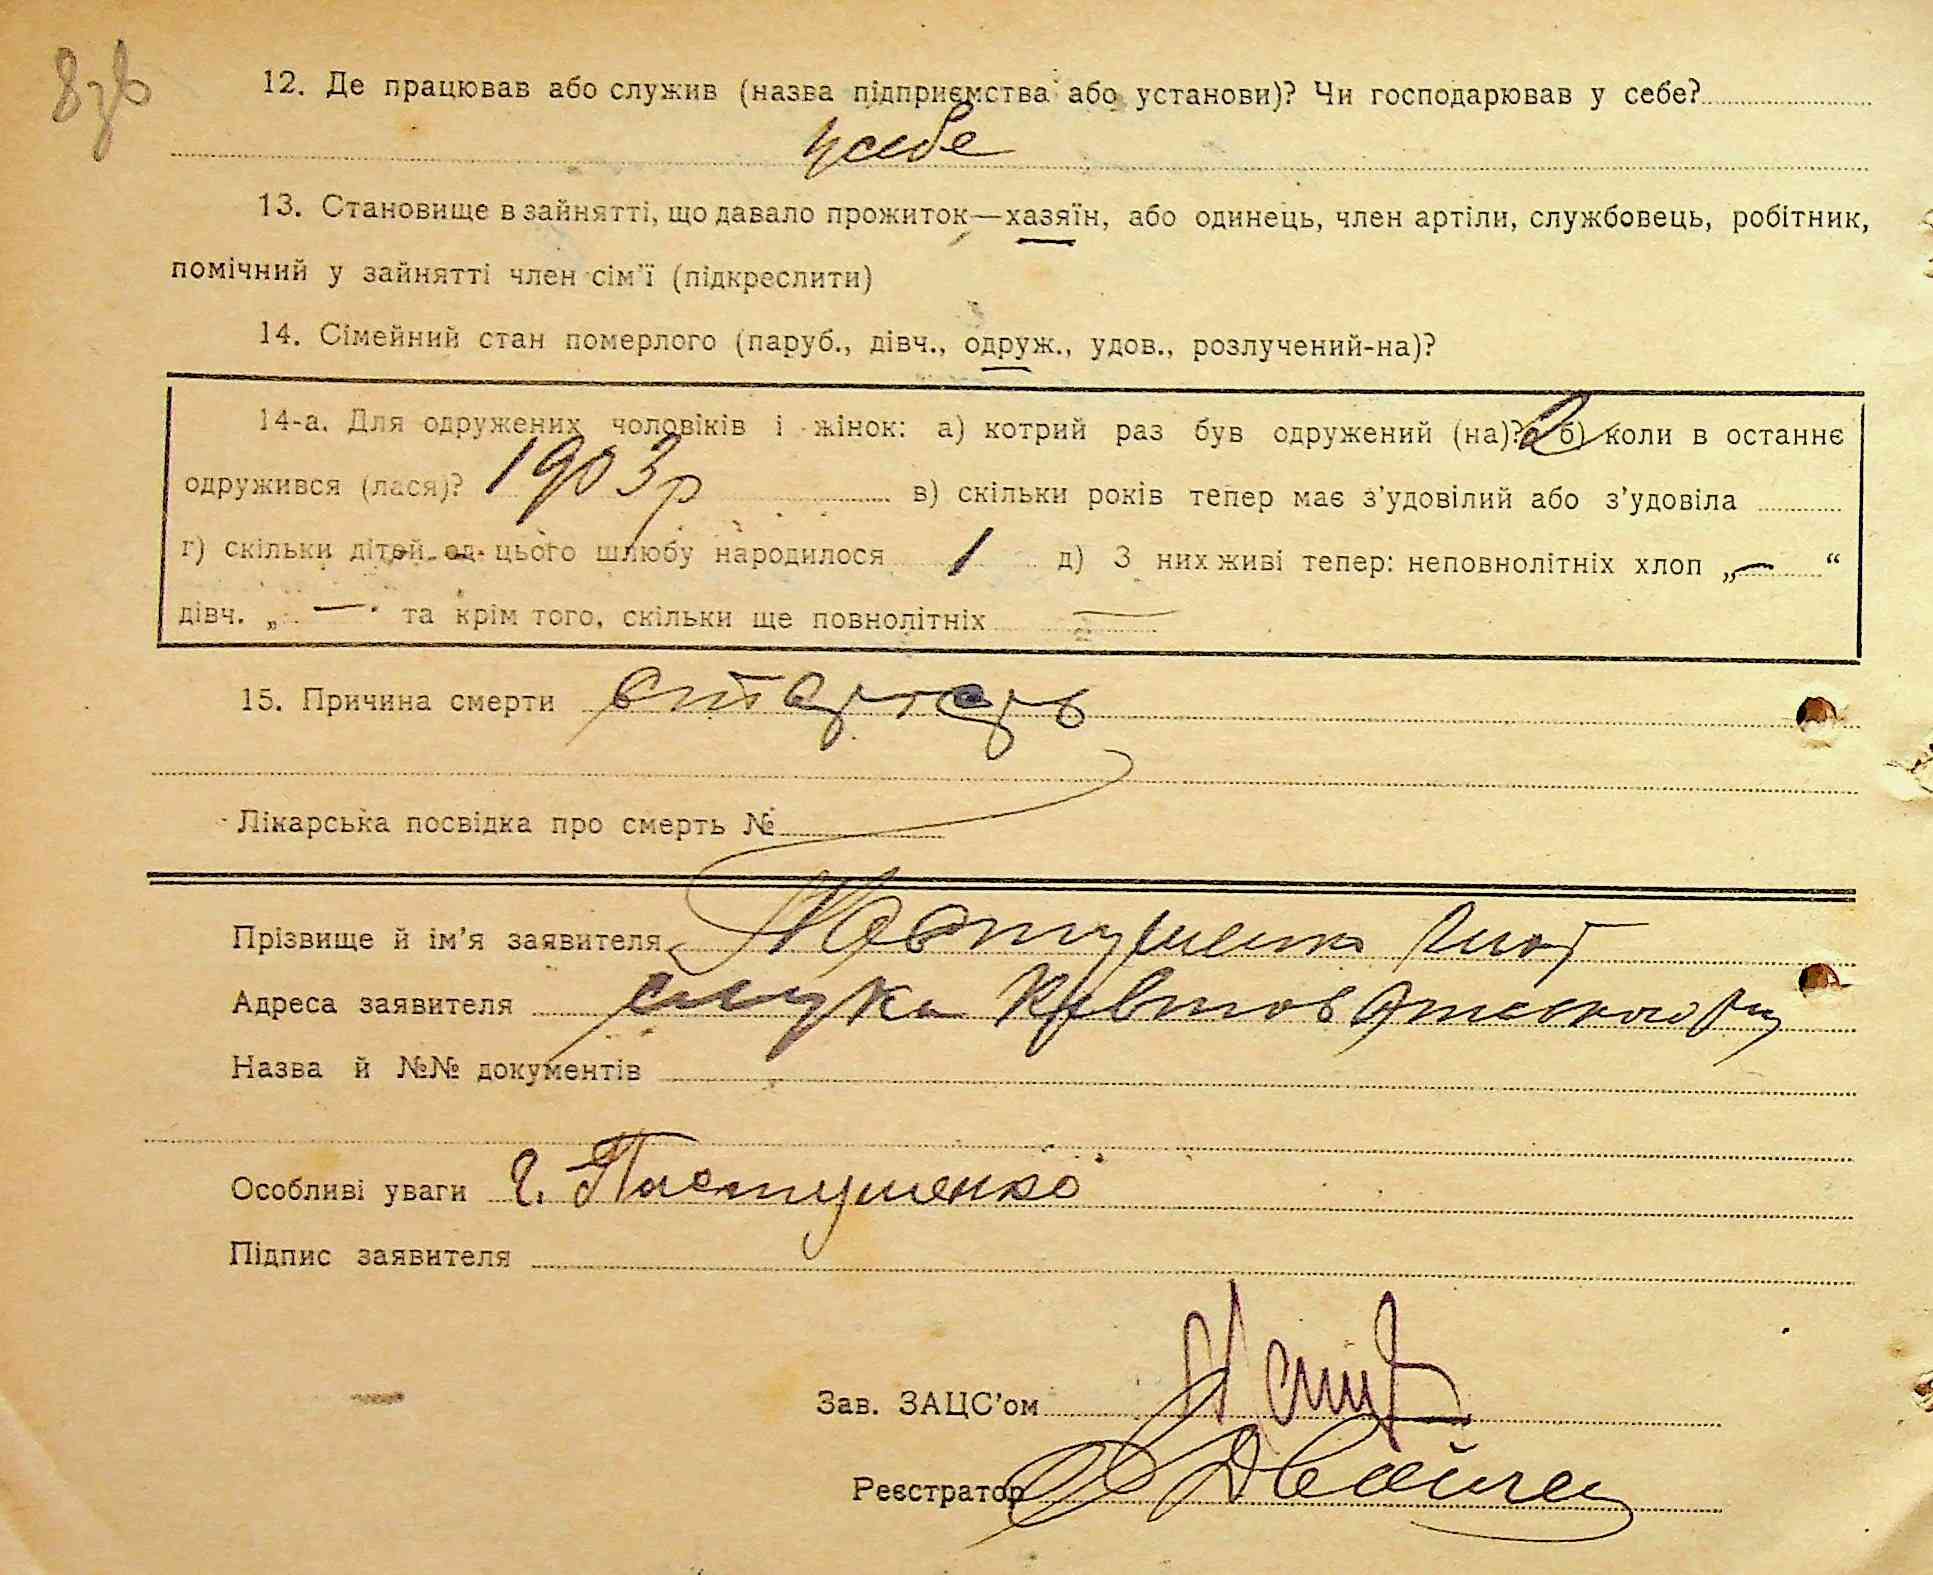 12. Де працював або служив (назва підприємства або установи)? Чи господарював у себе?
у себе
13. Становище в зайнятті, що давало прожиток—хазяїн, або одинець, член артіли, службовець, робітник,
помічний у зайнятті член сім'ї (підкреслити)
14. Сімейний стан померлого (паруб., дівч., одруж., удов., розлучений-на)?
14-а. Для одружених чоловіків і жінок: а) котрий раз був одружений (на)? 2 б) коли в останнє
одружився (лася)? 1903 р в) скільки років тепер має з'удовілий або з'удовіла
г) скільки дітей од цього шлюбу народилося 1 д) З них живі тепер: неповнолітніх хлоп „—“
дівч. „— та крім того, скільки ще повнолітніх —
15. Причина смерти старість
Лікарська посвідка про смерть №
Прізвище й ім'я заявителя Пастушенко
Адреса заявителя
Назва й №№ документів
Особливі уваги Г. Пастушенко
Підпис заявителя
Зав. ЗАЦС'ом
Реєстратор